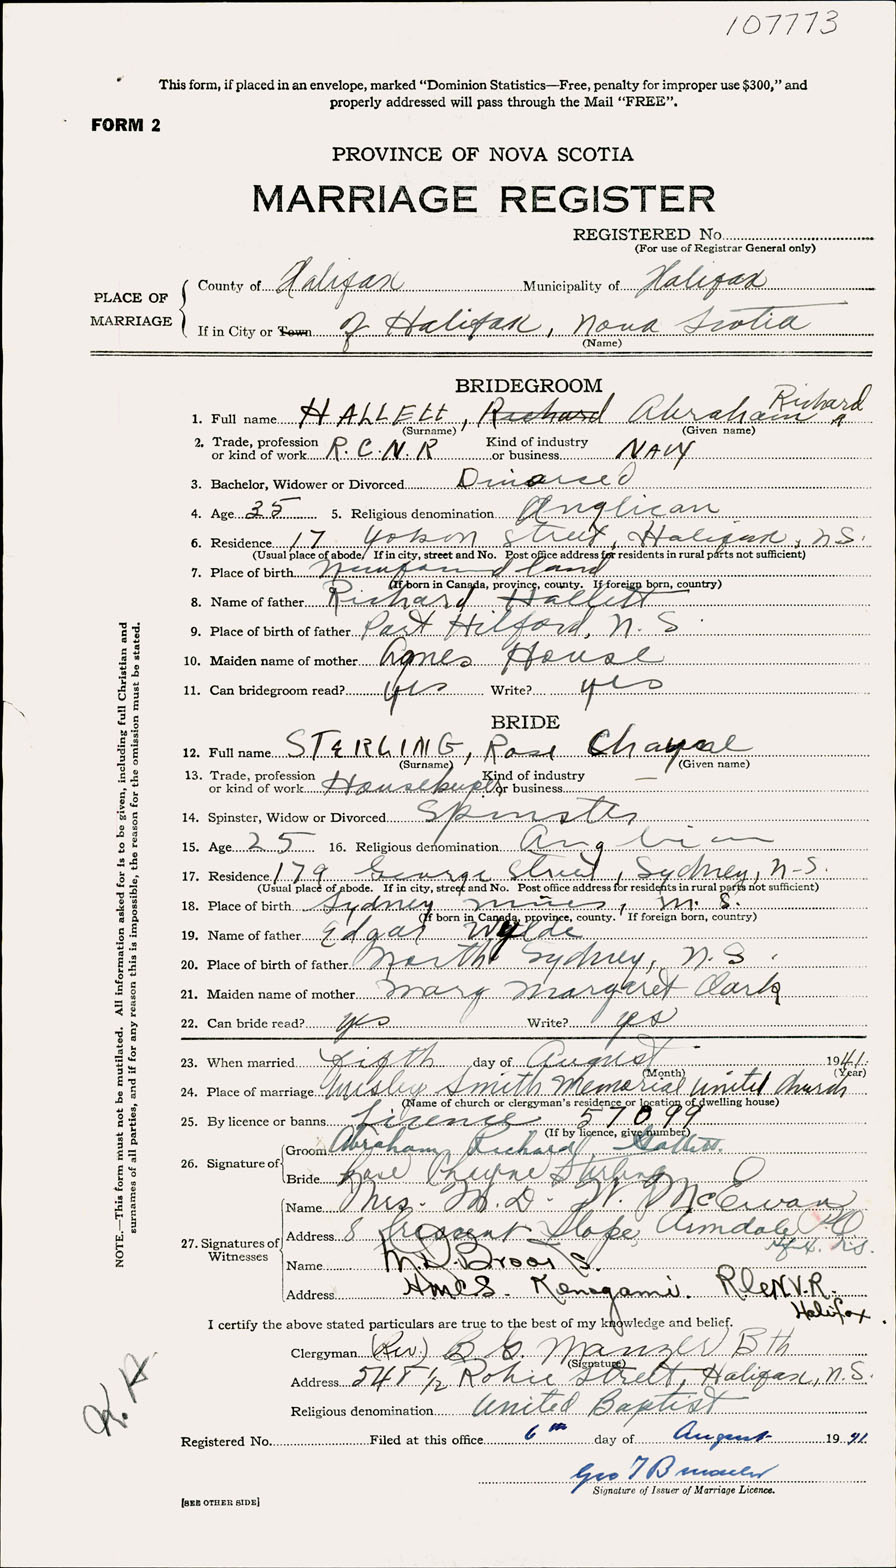 107773
This form, if placed in an envelope, marked “Dominion Statistics—Free, penalty for improper use $300,” and
properly addressed will pass through the Mail “FREE”.
FORM 2
PROVINCE OF NOVA SCOTIA
MARRIAGE REGISTER
REGISTERED No.
(For use of Registrar General only)
PLACE OF MARRIAGE
County of Halifax Municipality of Halifax
If in City or Town of Halifax, Nova Scotia
(Name)
BRIDEGROOM
1. Full name HALLETT, Richard Abraham Richard
(Surname) (Given name)
2. Trade, profession or kind of work R.C.N.R Kind of industry or business NAVY
3. Bachelor, Widower or Divorced Divorced
4. Age 35 5. Religious denomination Anglican
6. Residence 17 Street, Halifax, N.S.
(Usual place of abode. If in city, street and No. Post office address for residents in rural parts not sufficient)
7. Place of birth Newfoundland
(If born in Canada, province, county. If foreign born, country)
8. Name of father Richard Hallett
9. Place of birth of father Port Hilford, N.S.
10. Maiden name of mother Agnes House
11. Can bridegroom read? yes Write? yes
BRIDE
12. Full name STERLING, Rose
(Surname) (Given name)
13. Trade, profession or kind of work Housekeeper Kind of industry or business —
14. Spinster, Widow or Divorced Spinster
15. Age 25 16. Religious denomination Anglican
17. Residence 179 George Street, Sydney, N.S.
(Usual place of abode. If in city, street and No. Post office address for residents in rural parts not sufficient)
18. Place of birth Sydney Mines, N.S.
(If born in Canada, province, county. If foreign born, country)
19. Name of father Edgar Wylde
20. Place of birth of father North Sydney, N.S.
21. Maiden name of mother Mary Margaret Clark
22. Can bride read? yes Write? yes
23. When married Fifth day of August 1941.
(Month) (Year)
24. Place of marriage Wesley Smith Memorial United Church
(Name of church or clergyman's residence or location of dwelling house)
25. By licence or banns Licence 57099
(If by licence, give number)
26. Signature of
Groom Abraham Richard Hallett.
Bride Rose Sterling
27. Signatures of Witnesses
Name Mrs. M. D. W. McEwan
Address 8 Crescent Slope, Armdale PO
Hfx. N.S.
Name M.D.
Address H.M.C.S. Kenogami. R.C.N.V.R.
Halifax.
I certify the above stated particulars are true to the best of my knowledge and belief.
Clergyman (Rev.) B. G. Manzer BTh
(Signature)
Address 548 1/2 Robie Street, Halifax, N.S.
Religious denomination United Baptist
Registered No. Filed at this office 6th day of August 1941.
Geo T
Signature of Issuer of Marriage Licence.
[SEE OTHER SIDE]
NOTE.—This form must not be mutilated. All information asked for is to be given, including full Christian and
surnames of all parties, and if for any reason this is impossible, the reason for the omission must be stated.